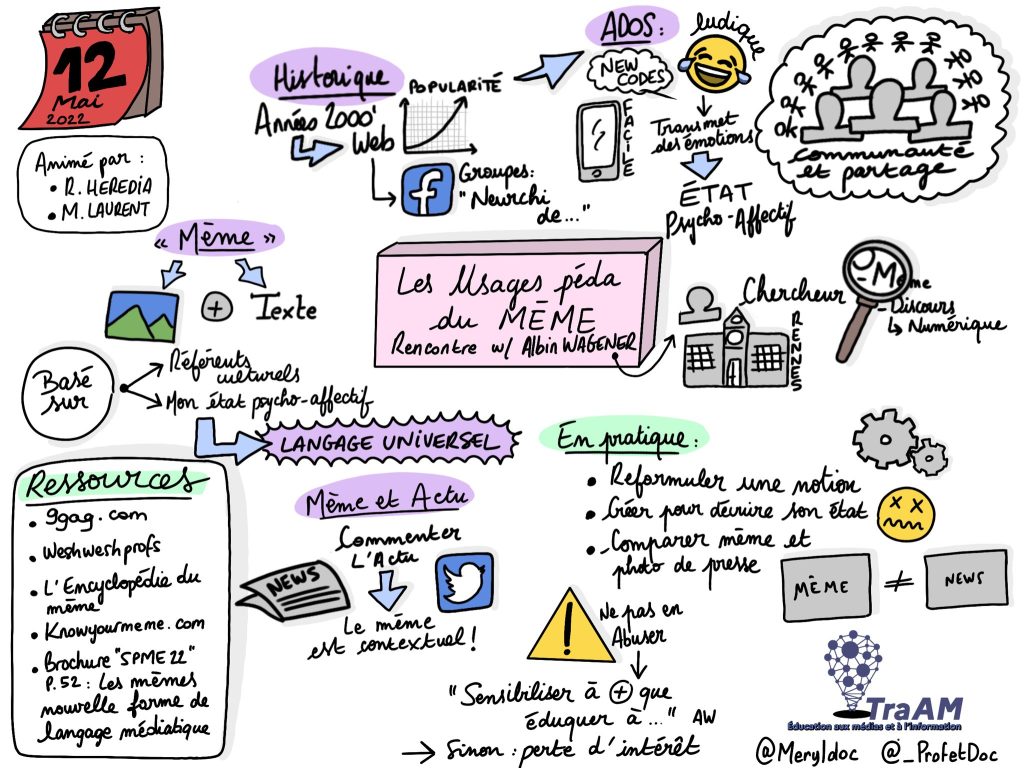 12
Mai
2022
Animé par :
• R. HEREDIA
• M. LAURENT
Historique
Années 2000'
Web
POPULARITÉ
Groupes:
"Neurchi
de..."
ADOS:
NEW
CODES
ludique
FACILE
Transmet
des émotions
ÉTAT
Psycho-Affectif
communauté
et partage
« Mème »
+
Texte
Basé
sur
Référents
culturels
Mon état psycho-affectif
LANGAGE UNIVERSEL
Les Usages péda
du MÈME
Rencontre w/ Albin WAGENER
Chercheur
RENNES
- Meme
- Discours
↳ Numérique
Ressources
• 9gag.com
• Weshweshprofs
• L'Encyclopédia du
mème
• Knowyourmeme.com
• Brochure "SPME 22"
P.52 : Les mèmes
nouvelle forme de
langage médiatique
Mème et Actu
Commenter
L'Actu
NEWS
Le mème
est contextuel !
En pratique :
• Reformuler une notion
• Créer pour décrire son état
• Comparer mème et
photo de presse
MÈME
≠
NEWS
!
Ne pas en
Abuser
"Sensibiliser à + que
éduquer à..." AW
→ Sinon : perte d'intérêt
TraAM
Éducation aux médias et à l'information
@Meryldoc @_ProfetDoc